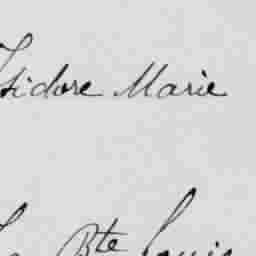 Isidore Marie
Bte Louis